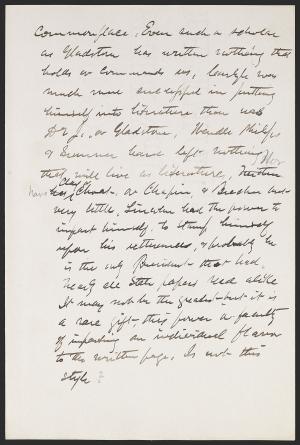 Commonplace. Even such a scholar
as Gladstone has written nothing that
holds or commands us, Carlyle was
much more successful in putting
himself into literature than was
Dr J., or Gladstone, Wendle Philips
& Sumner have left nothing
that will live as literature, Nor
has Clay, Choate, or Chapin, & Beecher but
very little, Lincoln had the power to
impart himself, to stamp himself
upon his utterances, & probably he
is the only President that had.
Nearly all State papers read alike
It may not be the greatest but it is
a rare gift, this power or faculty
of imparting an individual flavor
to the written page. Is not this
style?